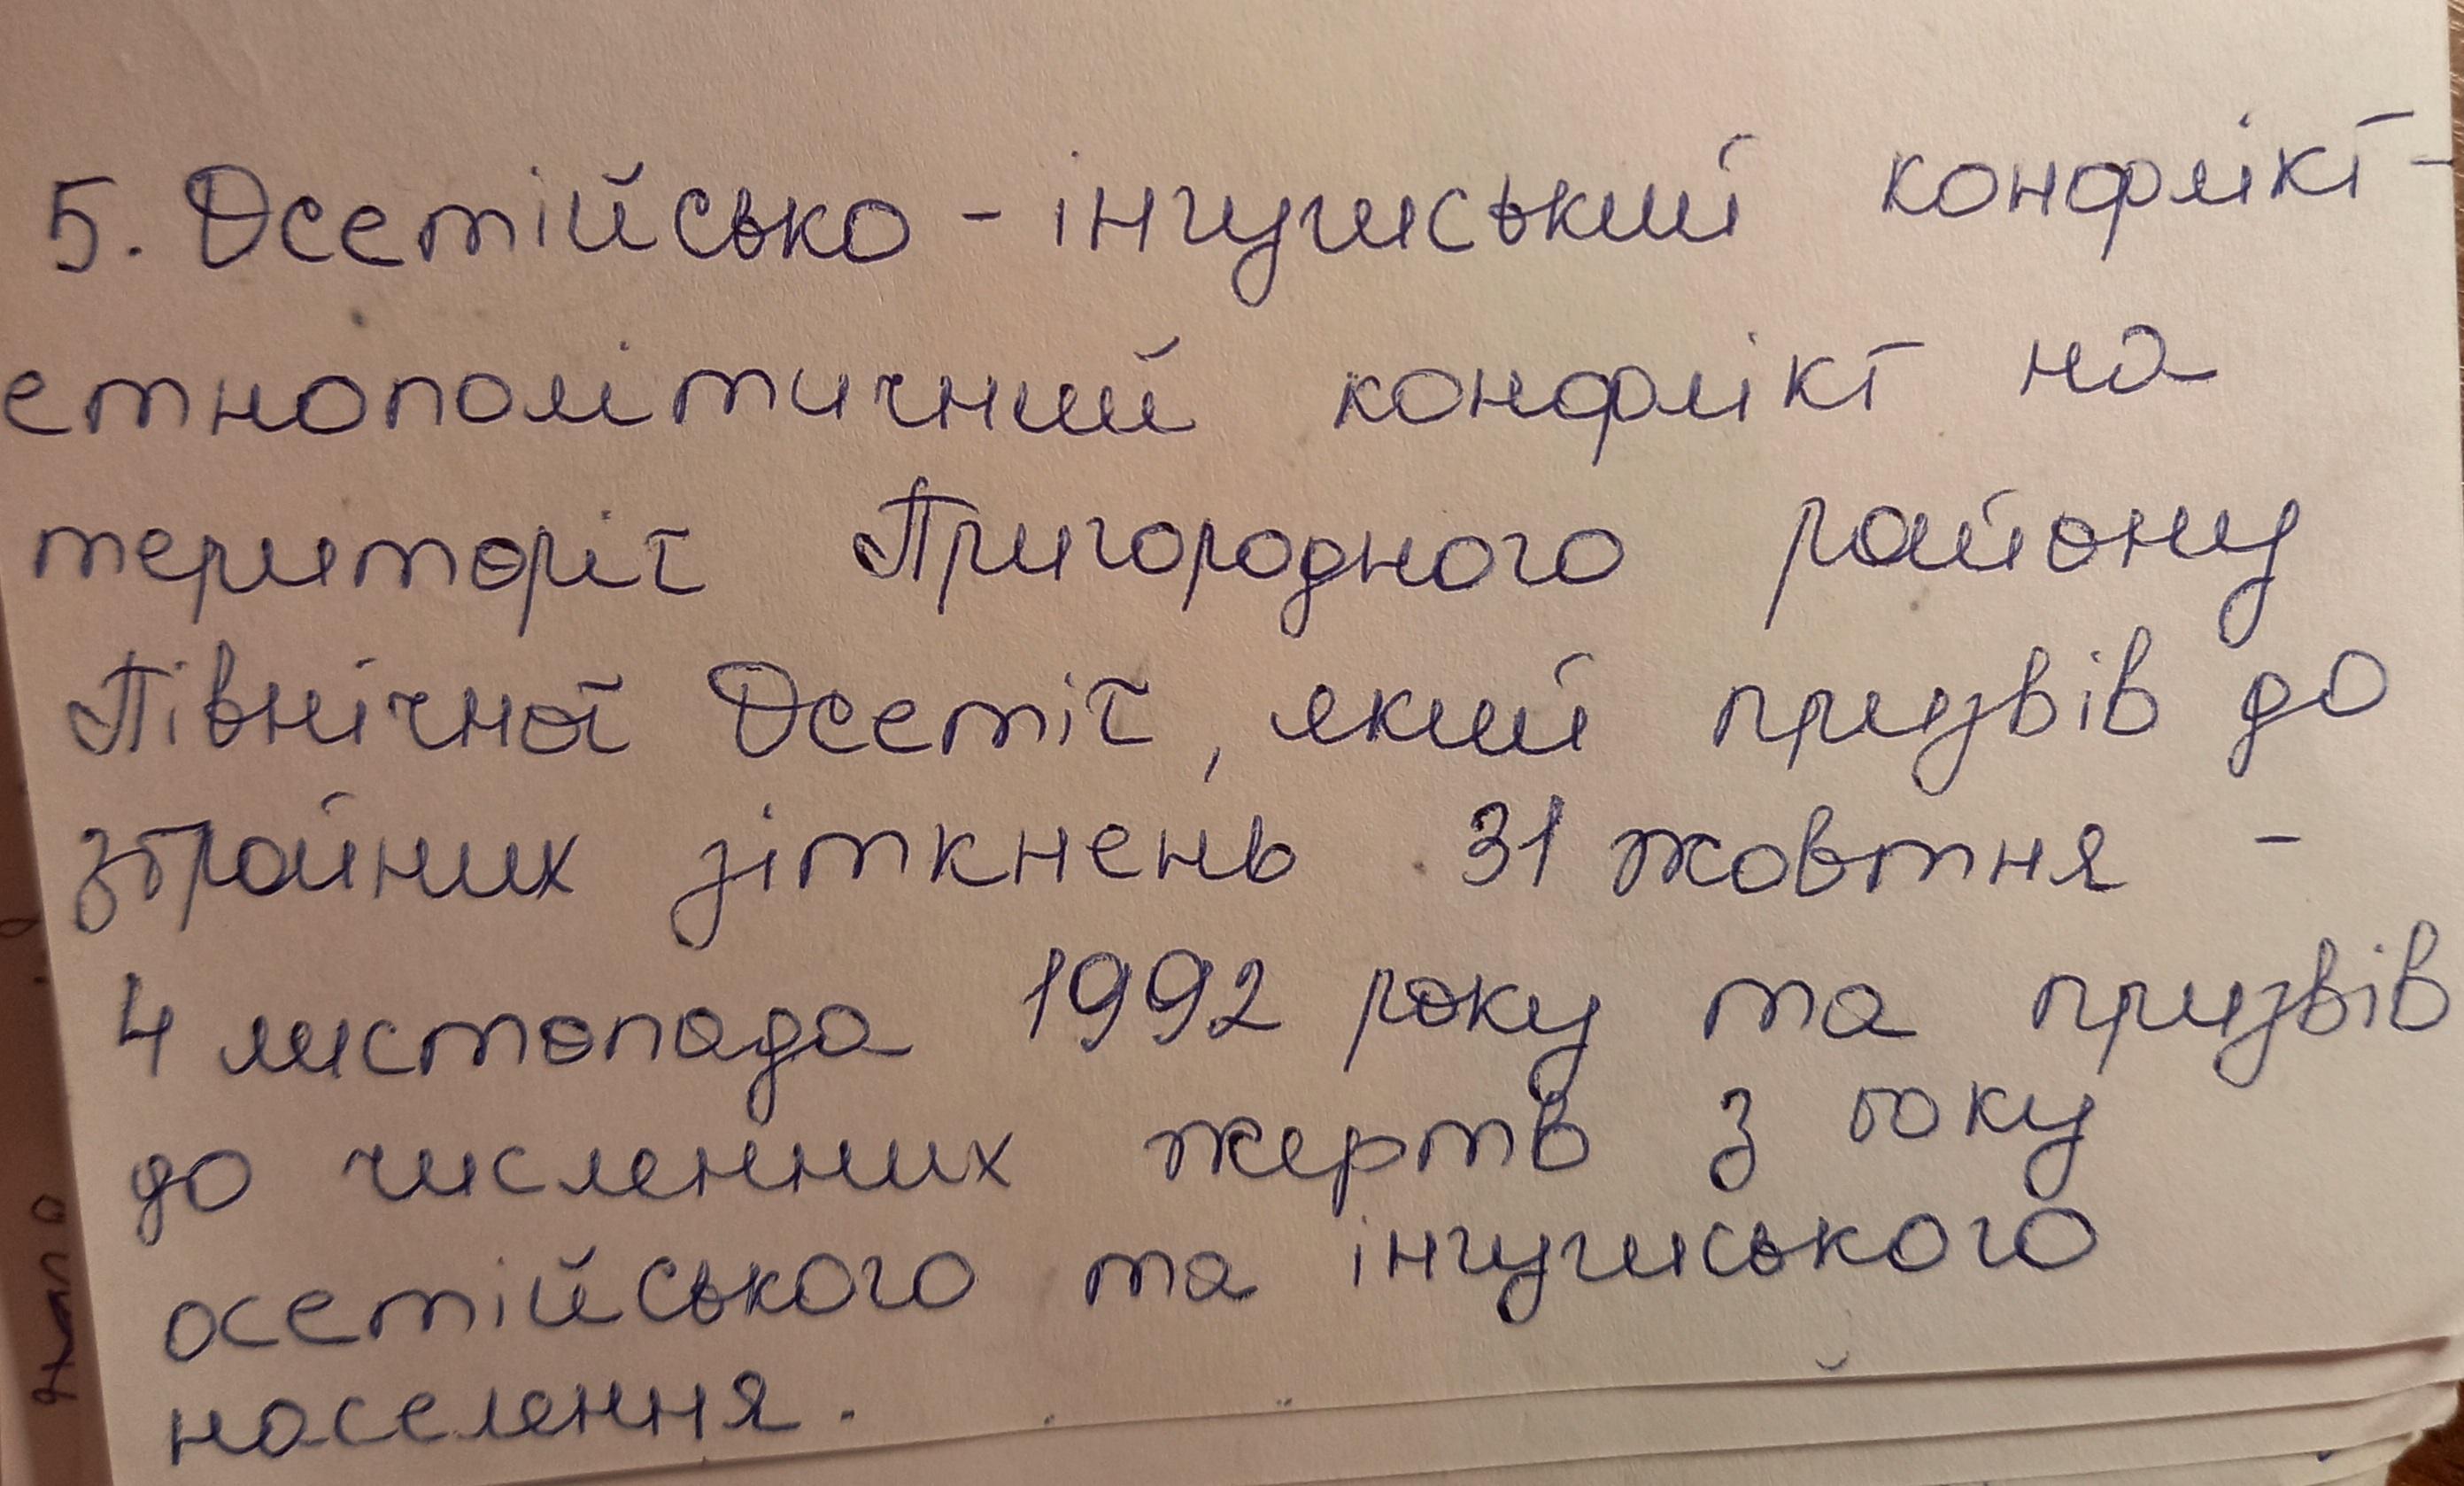 5. Осетійсько - інгушський конфлікт -
етнополітичний конфлікт на
територіі Пригородного району
Північної Осетії, який призвів до
збройних зіткнень 31 жовтня -
4 листопада 1992 року та призвів
до численних жертв з боку
осетійського та інгушського
населення.